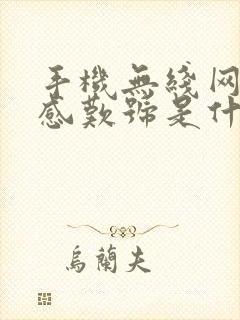 手機無綫网
感歎號是什
烏蘭夫